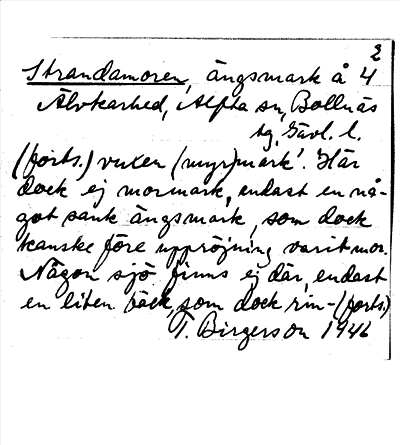 2
Strandamoren, ängsmark å 4
Älvkarhed, Alfta sn, Bollnäs
tg, Gävl. l.
(forts.) vuxen (myr)mark'. Här
dock ej mormark, endast en nå-
got sank ängsmark, som dock
kanske före uppröjning varit mor.
Någon sjö finns ej där, endast
en liten bäck, som dock rin- (forts.)
T. Birgerson 1946